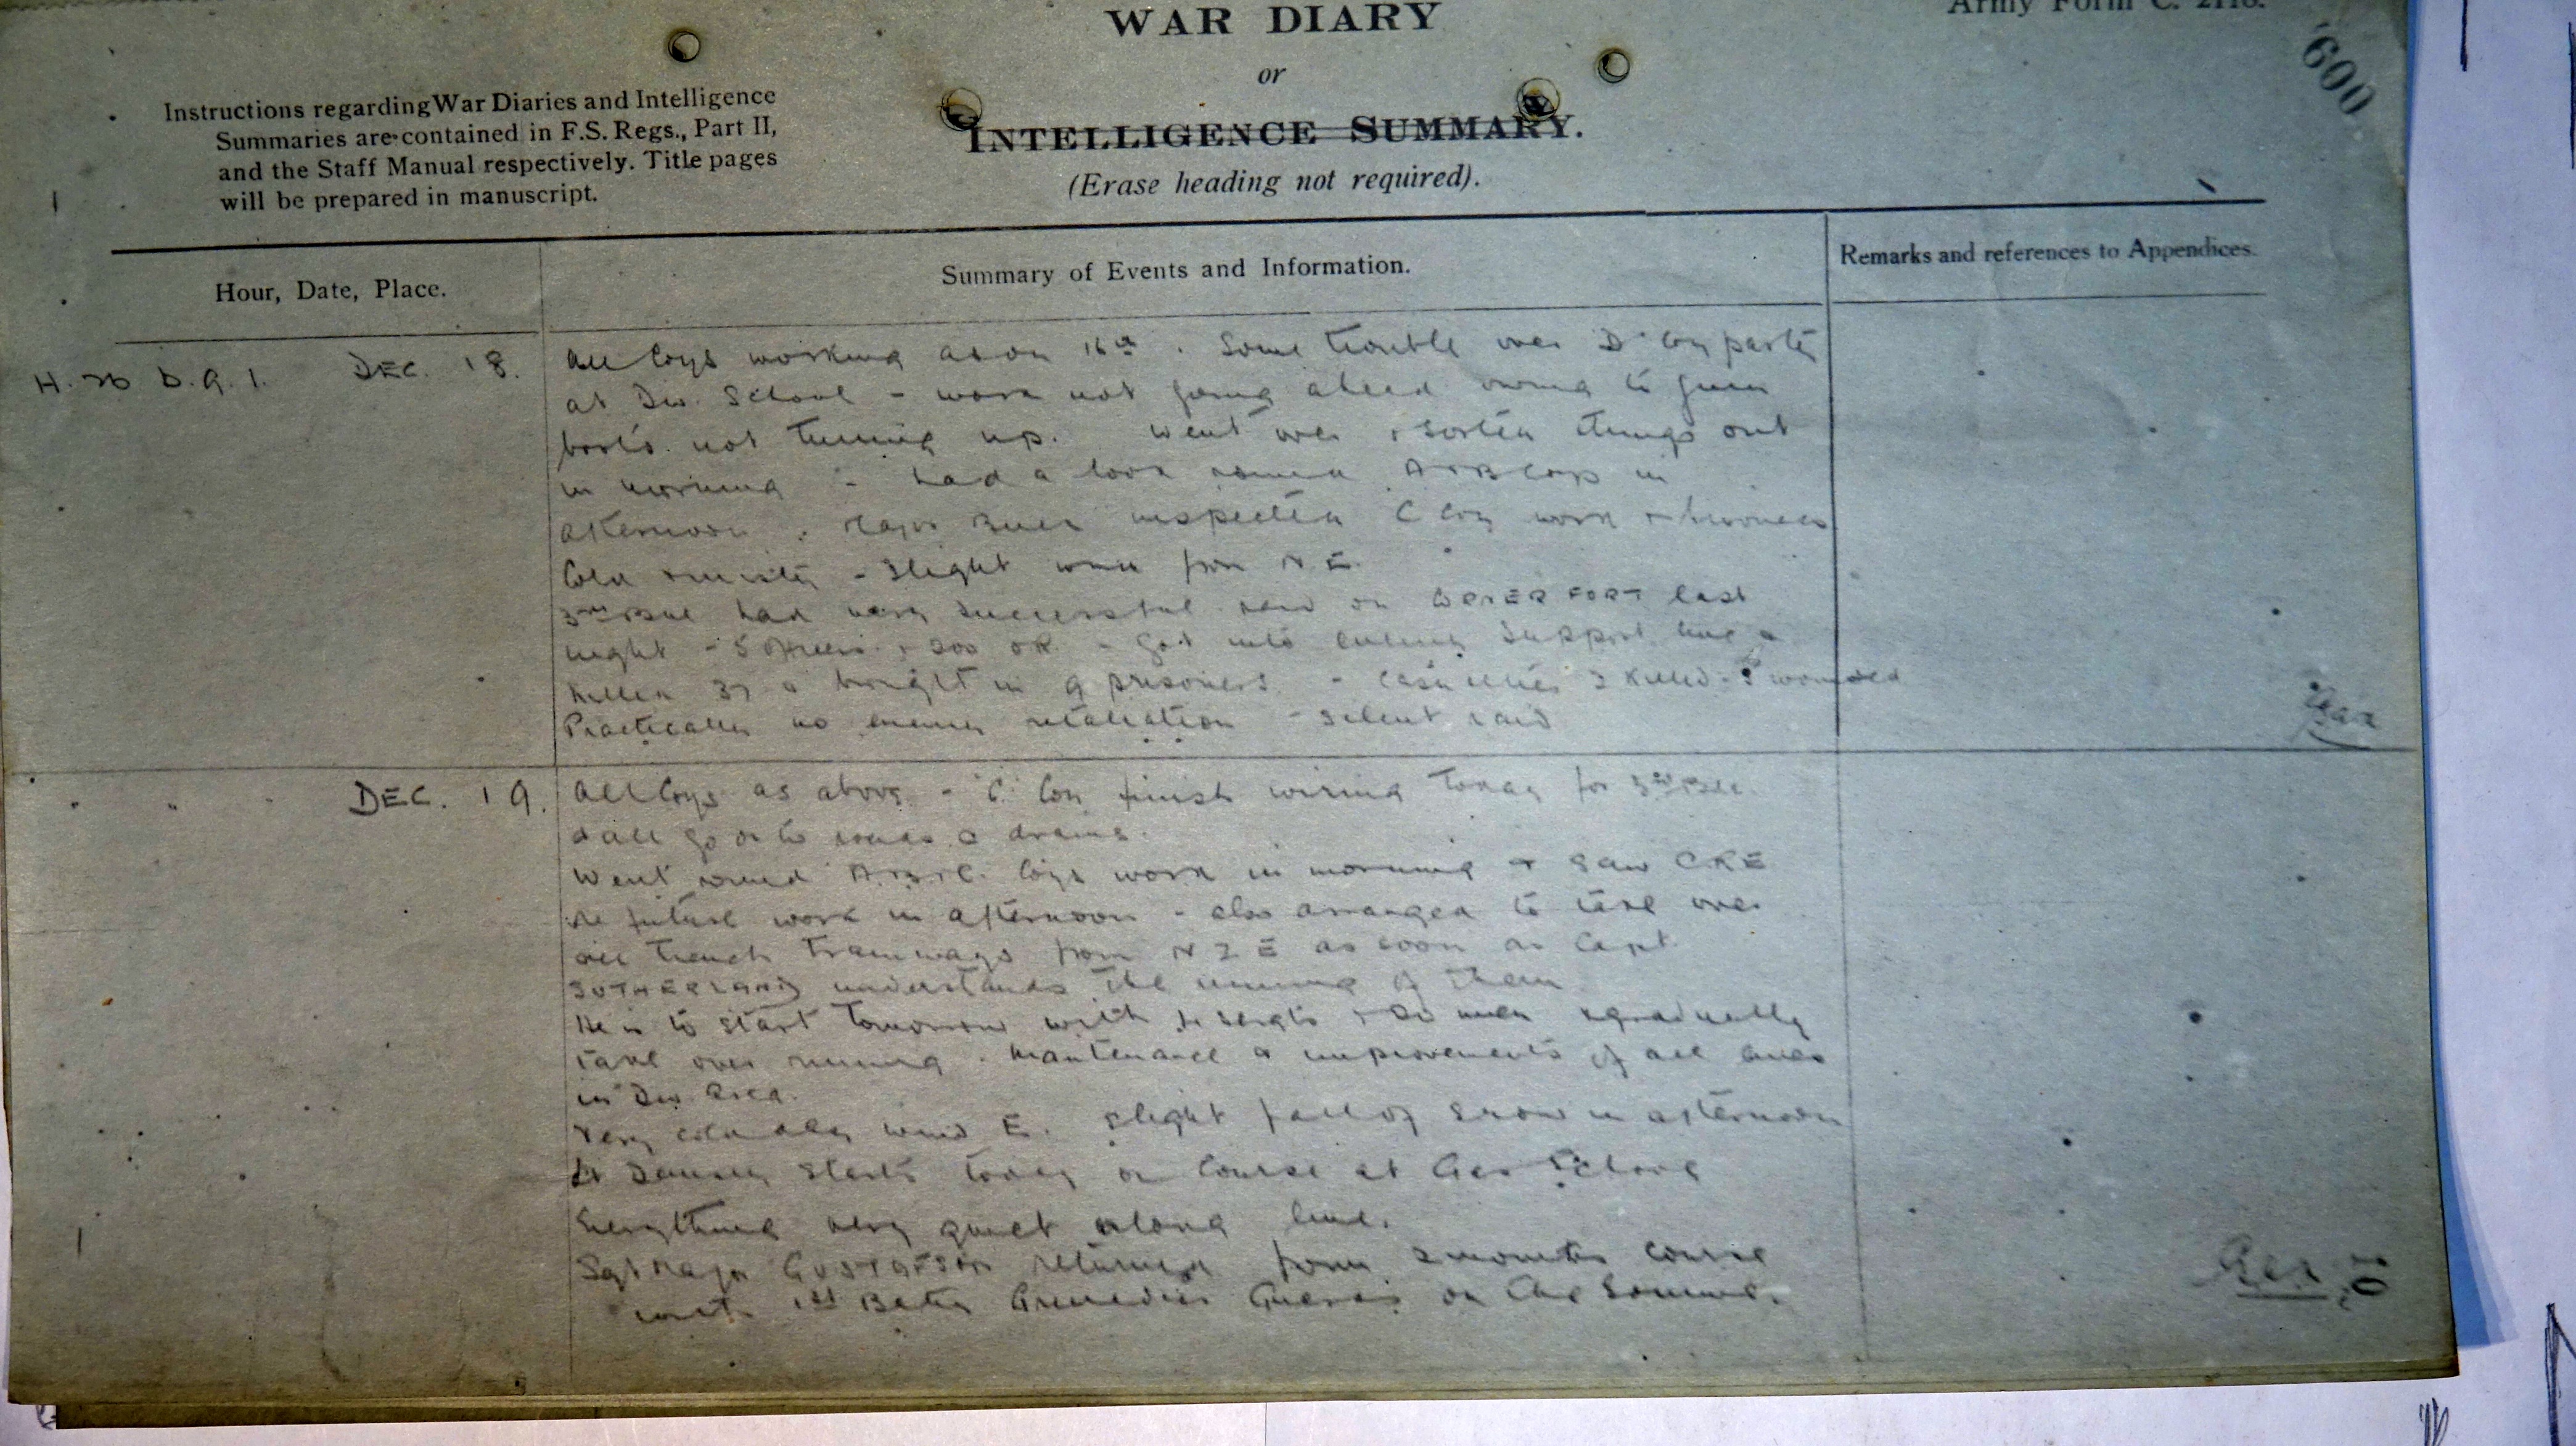 WAR DIARY
Army Form C. 2118.
or
INTELLIGENCE SUMMARY.
(Erase heading not required).
Instructions regarding War Diaries and Intelligence
Summaries are contained in F.S. Regs., Part II,
and the Staff Manual respectively. Title pages
will be prepared in manuscript.
600
Hour, Date, Place.
Summary of Events and Information.
Remarks and references to Appendices.
DEC. 18.
All Coys working as on 16th. Some trouble over D Coy party
at Div. School - work not going ahead owing to gum
boots not turning up. Went over & sorted things out
in morning - had a look round A & B Coys in
afternoon. Major inspected C Coy work &
Cold & misty - slight wind from N E.
3rd Bde had very successful raid on FORT last
night - 5 Officers & 200 OR - got into enemy support line &
killed 37 & brought in 9 prisoners - casualties 2 killed - wounded
Practically no enemy retaliation - silent raid
DEC. 19.
All Coys as above - C Coy finish wiring today for 3rd Bde
& all go on to roads & drains.
Went round A, B & C. Coys work in morning & saw CRE
re future work in afternoon - also arranged to take over
all trench tramways from N Z E as soon as Capt.
SUTHERLAND understands the running of them
He is to start tomorrow with 4 sergts & men & gradually
take over running, maintenance & improvements of all lines
in Div Area.
Very cold day wind E. slight fall of snow in afternoon
Lt starts today on Course at Gas School
Everything very quiet along line.
Sgt Major GUSTAFSON returned from 2 months course
with 1st Battn Grenadier Guards on the Somme.
10